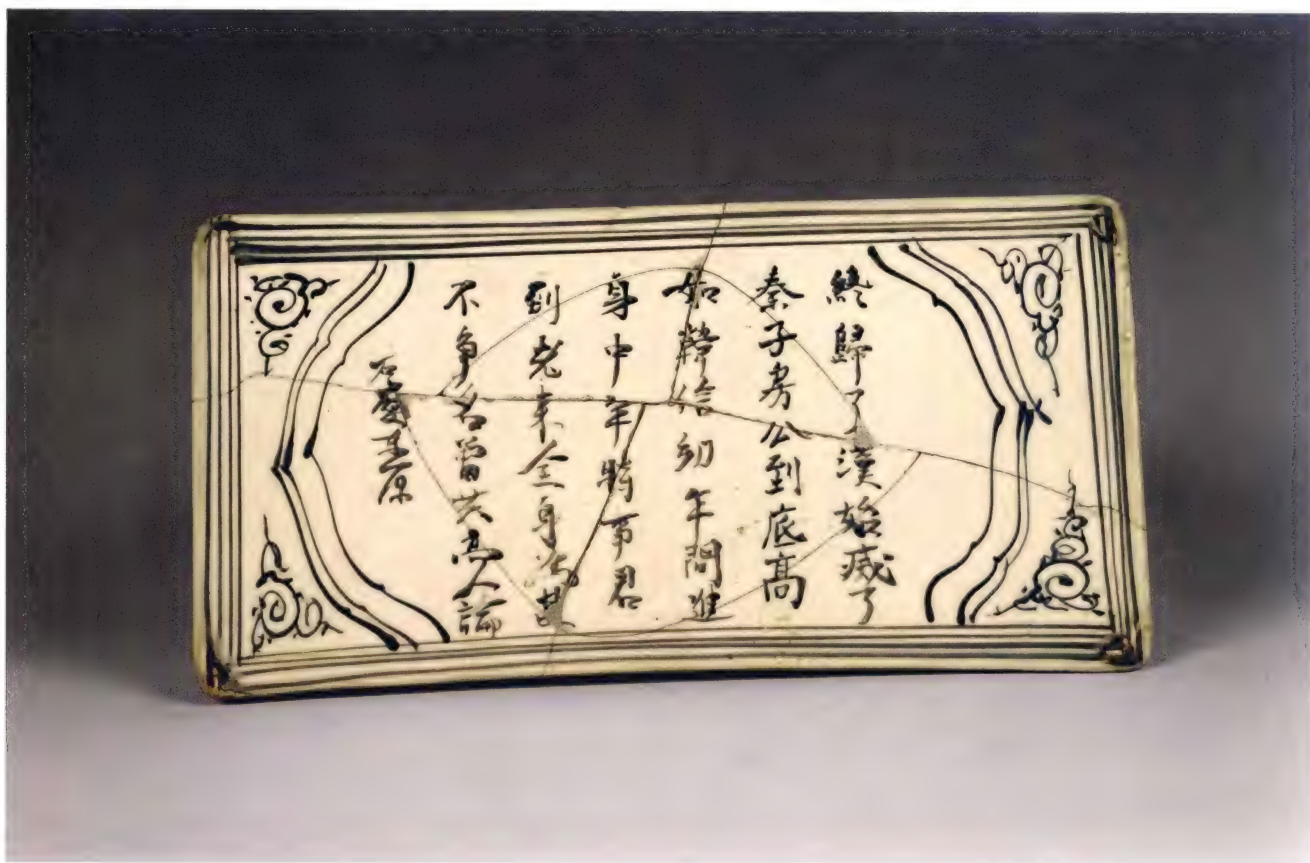 終歸了漢始滅了
秦子房公到底高
如韓信幼年間進
身中年時事君
到老来全身為甚
不爭名曾共高人論
右慶東原